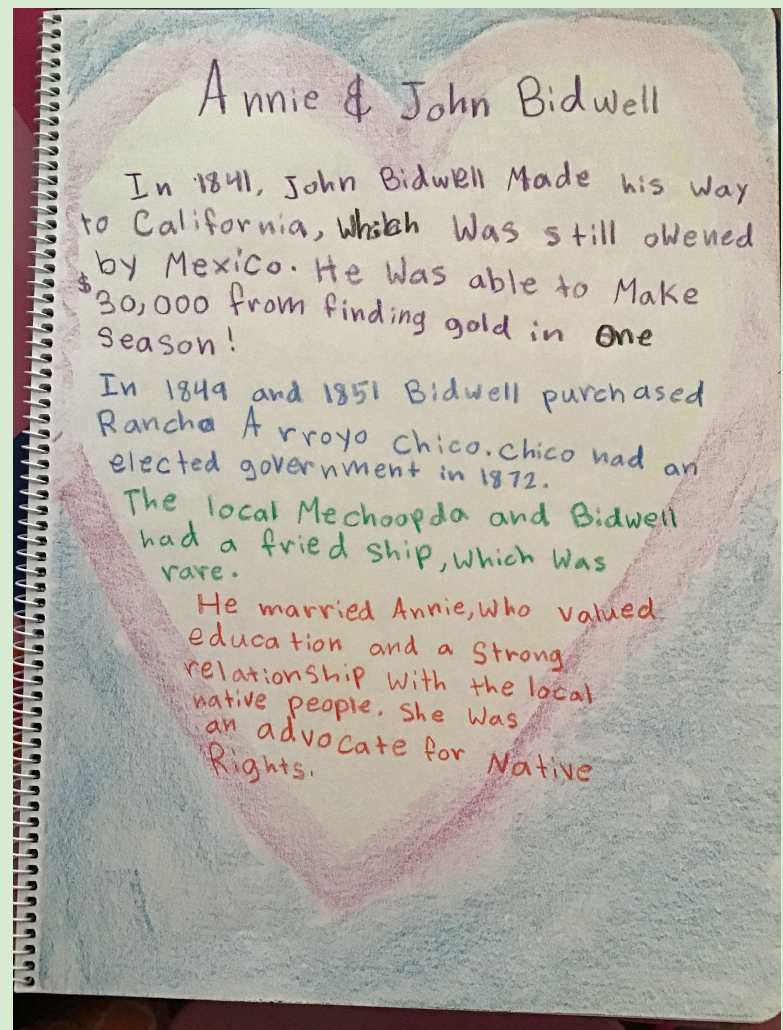 Annie & John Bidwell
In 1841, John Bidwell Made his way
to California, Which was still owened
by Mexico. He was able to Make
$30,000 from finding gold in One
Season!
In 1849 and 1851 Bidwell purchased
Rancho Arroyo Chico. Chico had an
elected government in 1872.
The local Mechoopda and Bidwell
had a fried ship, which was
rare.
He married Annie, who valued
education and a strong
relationship with the local
native people. She was
an advocate for Native
Rights.